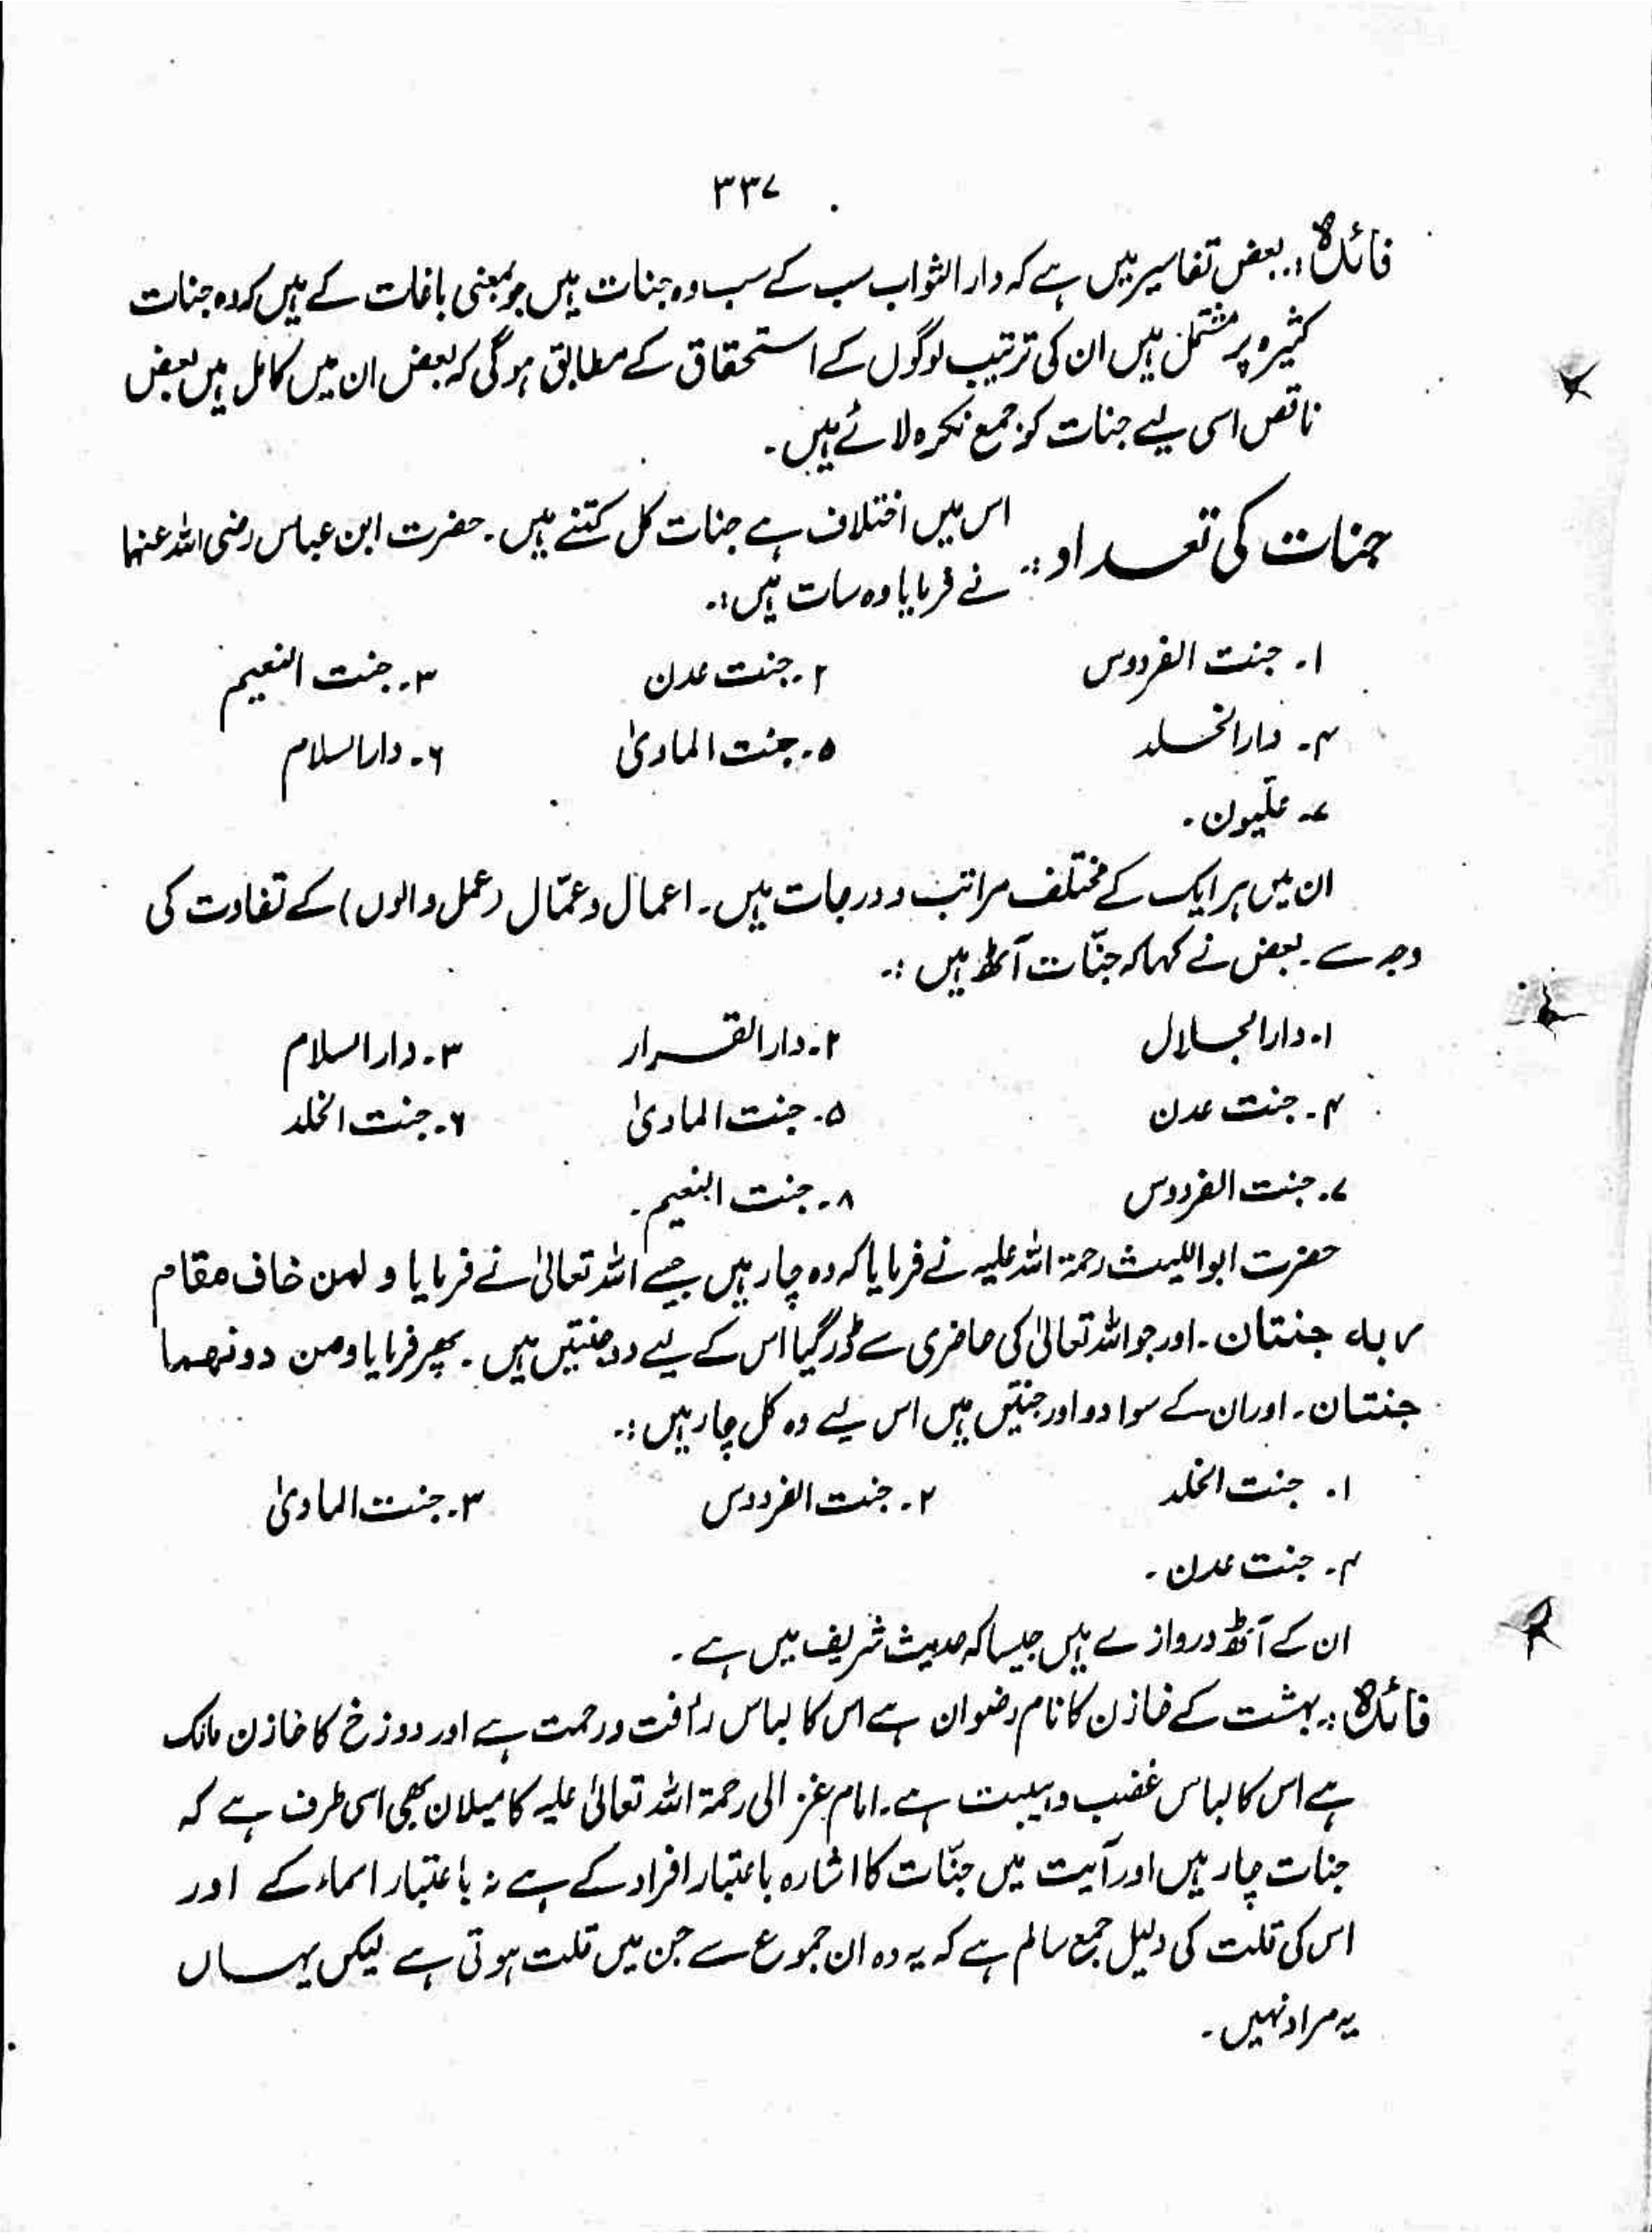 ۳۳۷
فائدہ:۔ بعض تفاسیر میں ہے کہ دار الثواب سب کے سب وہ جنات ہیں جو بمعنی باغات کے ہیں کہ وہ جنات
کثیرہ پر مشتمل ہیں ان کی ترتیب لوگوں کے استحقاق کے مطابق ہوگی کہ بعض ان میں کامل ہیں بعض
ناقص اسی لیے جنات کو جمع نکرہ لائے ہیں۔
جنات کی تعداد:۔ اس میں اختلاف ہے جنات کل کتنے ہیں۔ حضرت ابن عباس رضی اللہ عنہما
نے فرمایا وہ سات ہیں:۔
۱۔ جنت الفردوس ۲۔ جنت عدن ۳۔ جنت النعیم
۴۔ دارالخلد ۵۔ جنت الماویٰ ۶۔ دارالسلام
۷۔ علّیون۔
ان میں ہر ایک کے مختلف مراتب و درجات ہیں۔ اعمال و عمّال (عمل والوں) کے تفاوت کی
وجہ سے۔ بعض نے کہا کہ جنّات آٹھ ہیں:۔
۱۔ دارالجلال ۲۔ دارالقرار ۳۔ دارالسلام
۴۔ جنت عدن ۵۔ جنت الماویٰ ۶۔ جنت الخلد
۷۔ جنت الفردوس ۸۔ جنت النعیم۔
حضرت ابواللیث رحمۃ اللہ علیہ نے فرمایا کہ وہ چار ہیں جیسے اللہ تعالیٰ نے فرمایا و لمن خاف مقام
ربہ جنتان۔ اور جو اللہ تعالیٰ کی حاضری سے ڈر گیا اس کے لیے دو جنتیں ہیں۔ پھر فرمایا ومن دونھما
جنتان۔ اور ان کے سوا دو اور جنتیں ہیں اس لیے وہ کل چار ہیں:۔
۱۔ جنت الخلد ۲۔ جنت الفردوس ۳۔ جنت الماویٰ
۴۔ جنت عدن۔
ان کے آٹھ دروازے ہیں جیسا کہ حدیث شریف میں ہے۔
فائدہ:۔ بہشت کے خازن کا نام رضوان ہے اس کا لباس رأفت و رحمت ہے اور دوزخ کا خازن مالک
ہے اس کا لباس غضب و ہیبت ہے۔ امام غزالی رحمۃ اللہ تعالیٰ علیہ کا میلان بھی اسی طرف ہے کہ
جنات چار ہیں اور آیت میں جنّات کا اشارہ باعتبار افراد کے ہے نہ باعتبار اسماء کے اور
اس کی قلت کی دلیل جمع سالم ہے کہ یہ وہ ان جموع سے جن میں قلت ہوتی ہے لیکن یہاں
یہ مراد نہیں۔